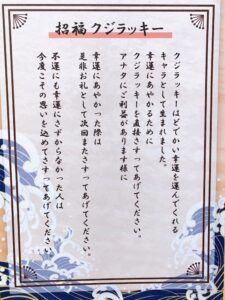 招福クジラッキー
クジラッキーはどでかい幸運を運んでくれる
キャラとして生まれました。
幸運にあやかるために
クジラッキーを直接さすってあげてください。
アナタにご利益があります様に
幸運にあやかった際は
是非お礼として次回またさすってあげてください。
不運にも幸運にさずからなかった人は
今度こその思いを込めてさすってあげてください。